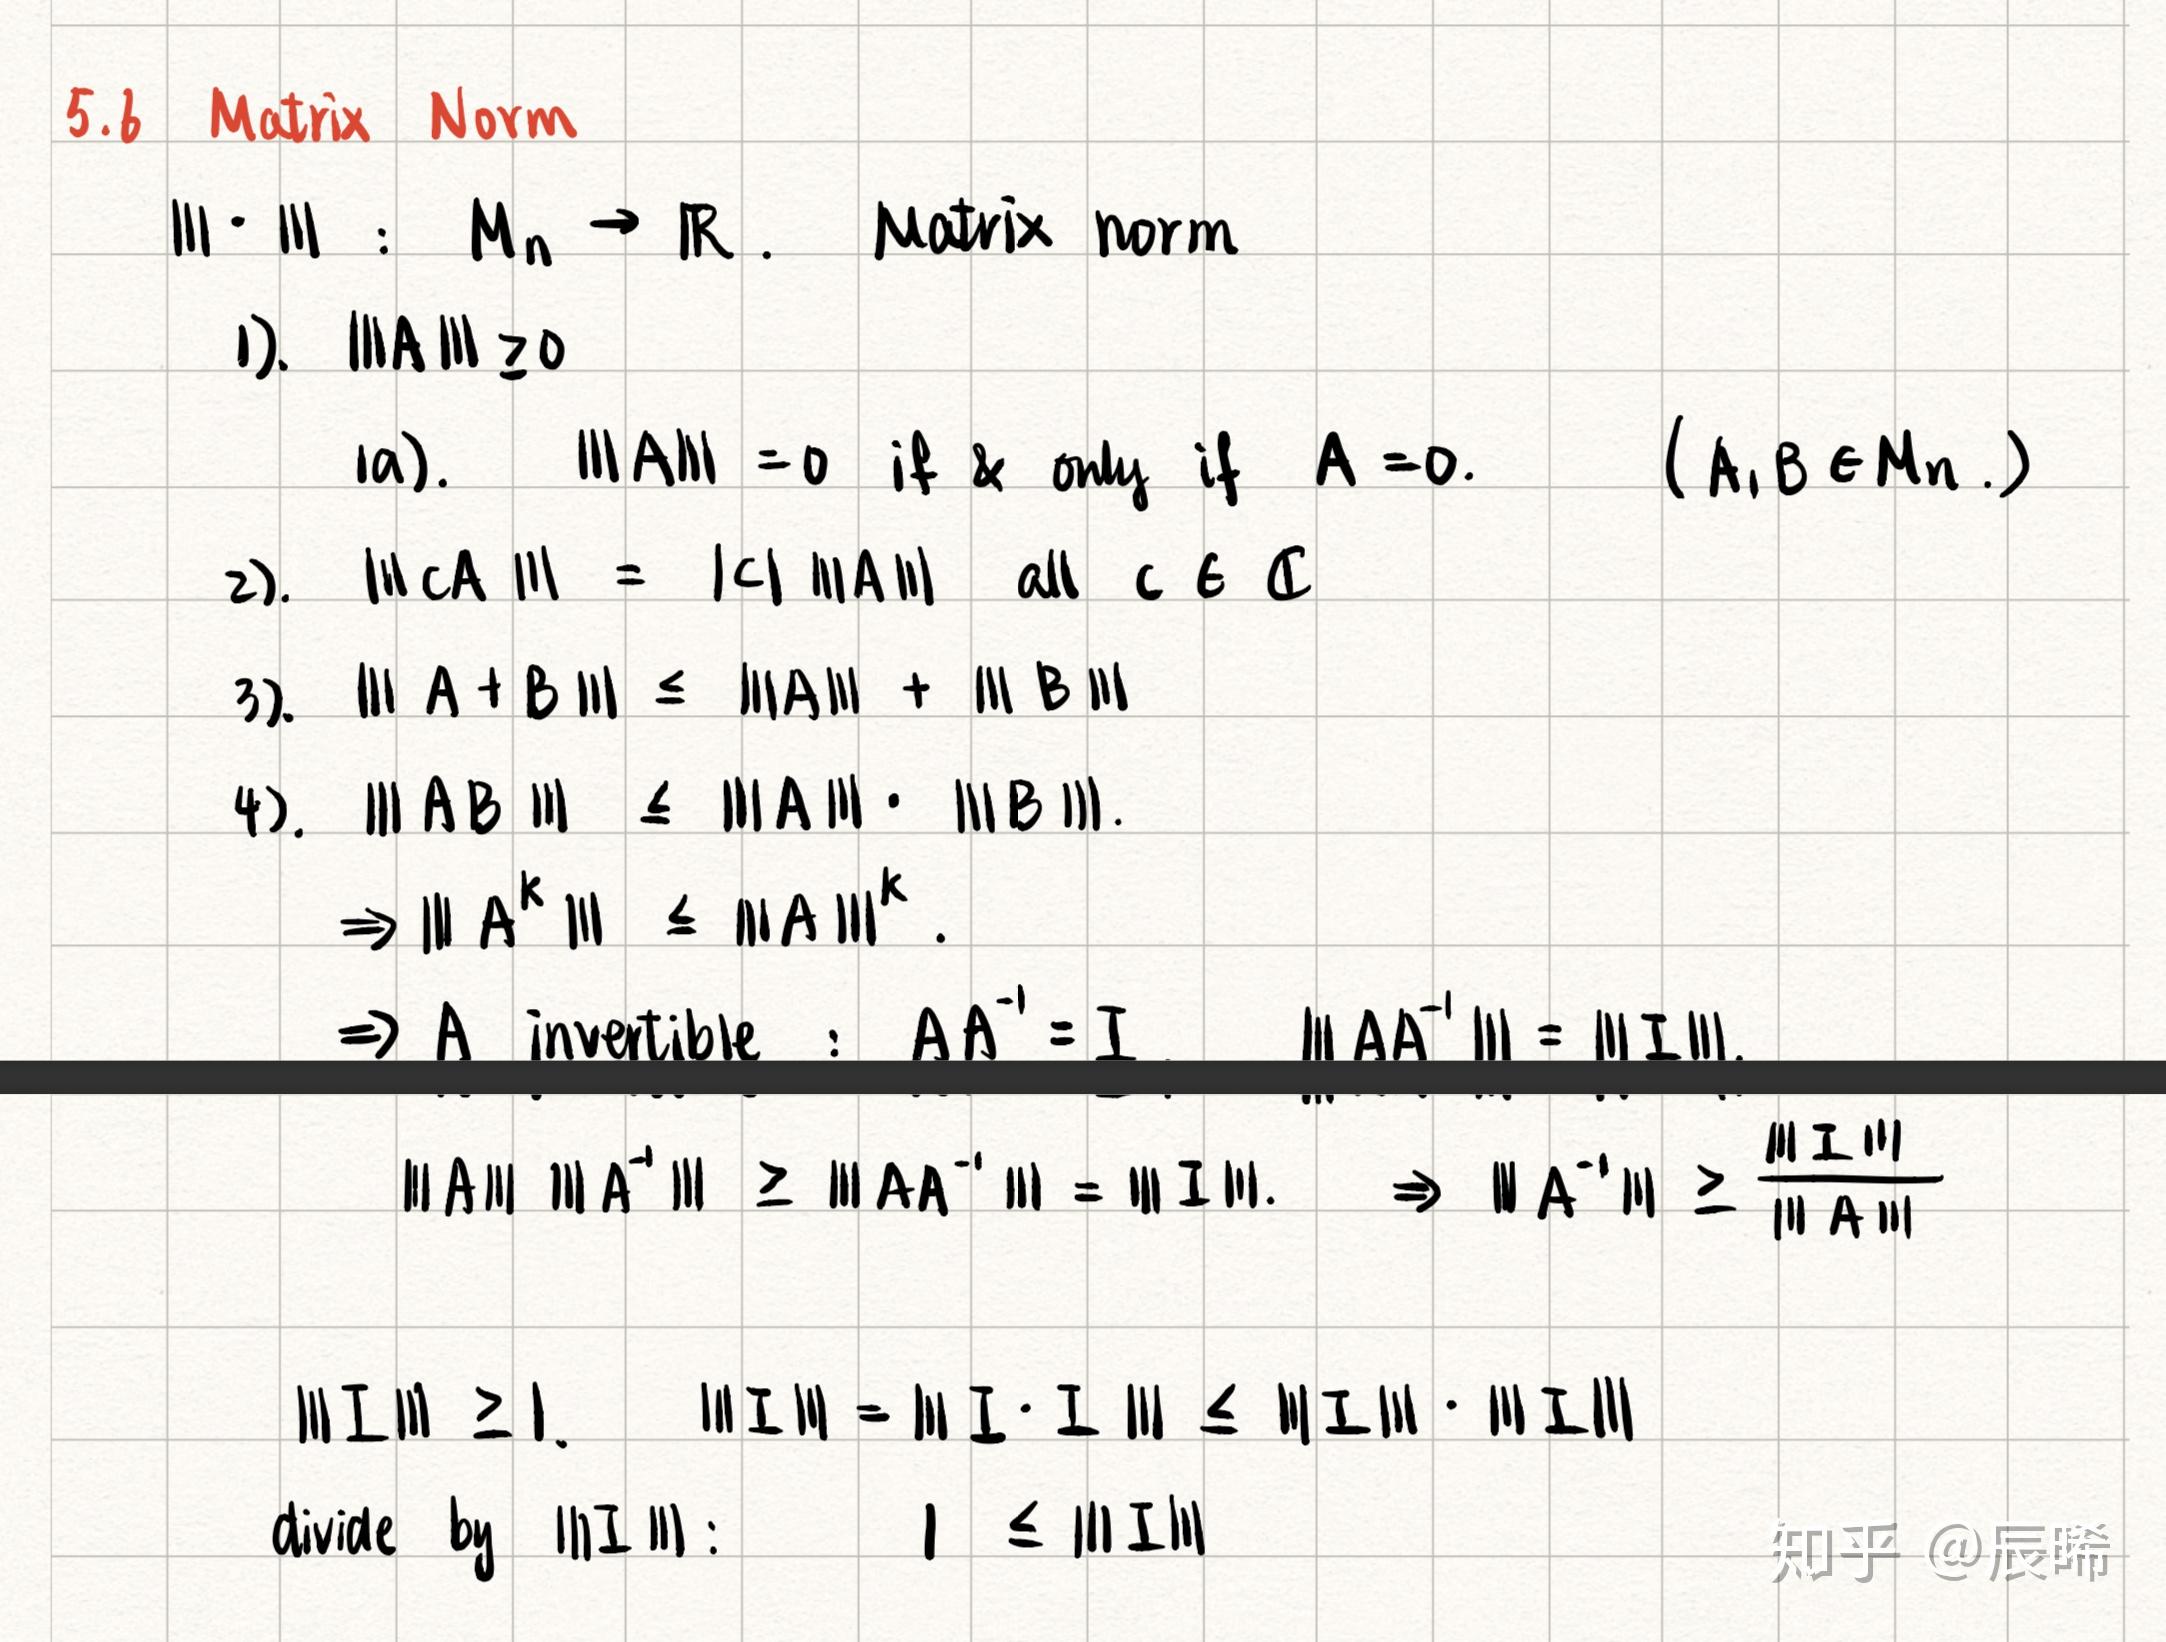 5.6 Matrix Norm
|||·||| : Mn → ℝ. Matrix norm
1). |||A||| ≥ 0
1a). |||A||| = 0 if & only if A = 0. (A, B ∈ Mn.)
2). |||cA||| = |c| |||A||| all c ∈ ℂ
3). |||A + B||| ≤ |||A||| + |||B|||
4). |||AB||| ≤ |||A||| · |||B|||.
⇒ |||A^k||| ≤ |||A|||^k.
⇒ A invertible : AA⁻¹ = I. |||AA⁻¹||| = |||I|||.
|||A||| |||A⁻¹||| ≥ |||AA⁻¹||| = |||I|||. ⇒ |||A⁻¹||| ≥ |||I||| / |||A|||
|||I||| ≥ 1. |||I||| = |||I · I||| ≤ |||I||| · |||I|||
divide by |||I||| : 1 ≤ |||I|||
知乎 @辰晞